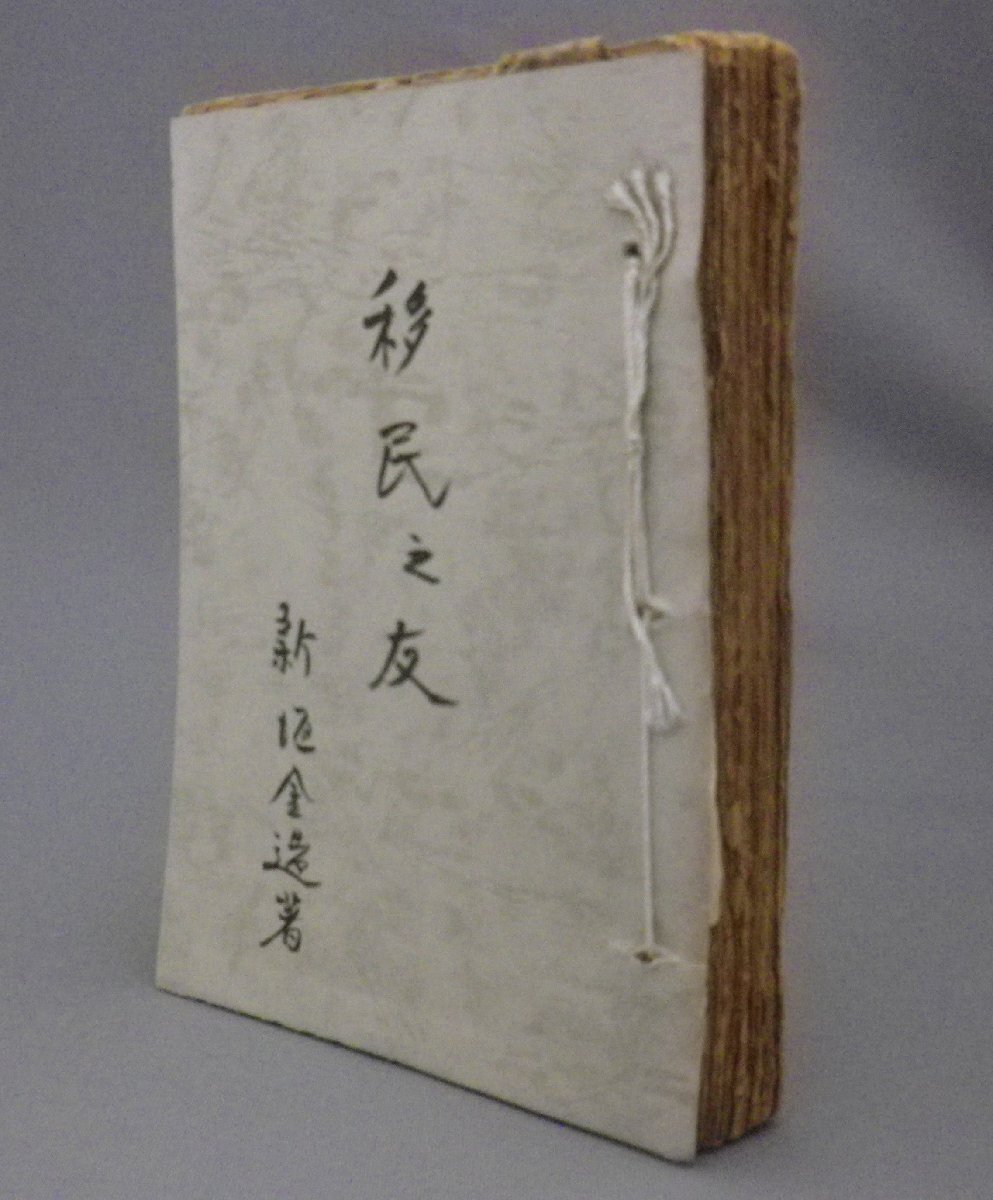 移民之友
新垣金造著